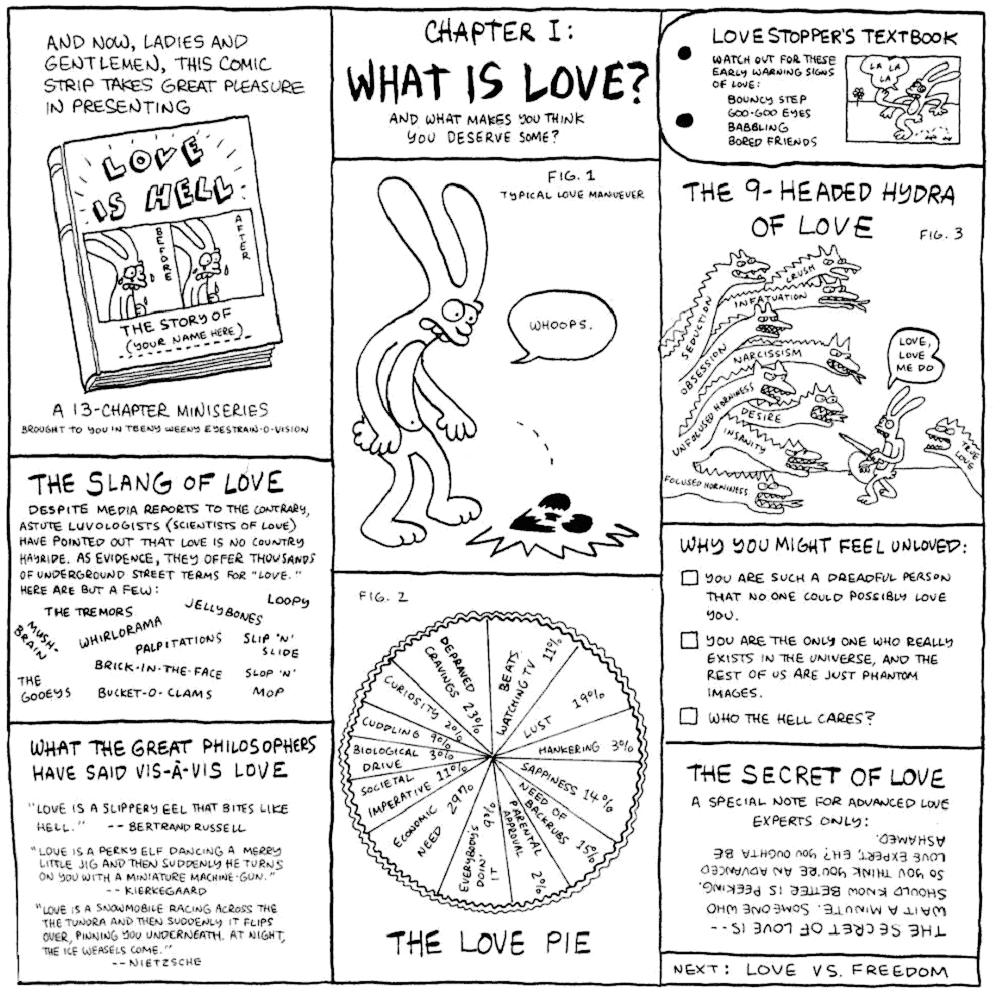 AND NOW, LADIES AND
GENTLEMEN, THIS COMIC
STRIP TAKES GREAT PLEASURE
IN PRESENTING
LOVE
IS HELL
BEFORE
AFTER
THE STORY OF
(YOUR NAME HERE)
A 13-CHAPTER MINISERIES
BROUGHT TO YOU IN TEENY WEENY EYESTRAIN-O-VISION
THE SLANG OF LOVE
DESPITE MEDIA REPORTS TO THE CONTRARY,
ASTUTE LUVOLOGISTS (SCIENTISTS OF LOVE)
HAVE POINTED OUT THAT LOVE IS NO COUNTRY
HAYRIDE. AS EVIDENCE, THEY OFFER THOUSANDS
OF UNDERGROUND STREET TERMS FOR "LOVE."
HERE ARE BUT A FEW:
THE TREMORS
JELLYBONES
LOOPY
MUSH-
BRAIN
WHIRLORAMA
PALPITATIONS
SLIP 'N'
SLIDE
BRICK-IN-THE-FACE
THE
GOOEYS
BUCKET-O-CLAMS
SLOP 'N'
MOP
WHAT THE GREAT PHILOSOPHERS
HAVE SAID VIS-À-VIS LOVE
"LOVE IS A SLIPPERY EEL THAT BITES LIKE
HELL." -- BERTRAND RUSSELL
"LOVE IS A PERKY ELF DANCING A MERRY
LITTLE JIG AND THEN SUDDENLY HE TURNS
ON YOU WITH A MINIATURE MACHINE-GUN."
-- KIERKEGAARD
"LOVE IS A SNOWMOBILE RACING ACROSS THE
THE TUNDRA AND THEN SUDDENLY IT FLIPS
OVER, PINNING YOU UNDERNEATH. AT NIGHT,
THE ICE WEASELS COME."
-- NIETZSCHE
CHAPTER I:
WHAT IS LOVE?
AND WHAT MAKES YOU THINK
YOU DESERVE SOME?
FIG. 1
TYPICAL LOVE MANUEVER
WHOOPS.
FIG. 2
BEATS
WATCHING TV 11%
LUST 19%
HANKERING 3%
SAPPINESS 14%
NEED OF
BACKRUBS 15%
PARENTAL
APPROVAL 2%
EVERYBODY'S
DOIN'
IT 9%
ECONOMIC
NEED 29%
SOCIETAL
IMPERATIVE 11%
BIOLOGICAL
DRIVE 3%
CUDDLING 9%
CURIOSITY 2%
DEPRAVED
CRAVINGS 23%
THE LOVE PIE
LOVE STOPPER'S TEXTBOOK
WATCH OUT FOR THESE
EARLY WARNING SIGNS
OF LOVE:
BOUNCY STEP
GOO-GOO EYES
BABBLING
BORED FRIENDS
LA LA
LA
THE 9-HEADED HYDRA
OF LOVE
FIG. 3
SEDUCTION
CRUSH
INFATUATION
OBSESSION
NARCISSISM
UNFOCUSED HORNINESS
DESIRE
INSANITY
FOCUSED HORNINESS
LOVE,
LOVE
ME DO
TRUE
LOVE
WHY YOU MIGHT FEEL UNLOVED:
YOU ARE SUCH A DREADFUL PERSON
THAT NO ONE COULD POSSIBLY LOVE
YOU.
YOU ARE THE ONLY ONE WHO REALLY
EXISTS IN THE UNIVERSE, AND THE
REST OF US ARE JUST PHANTOM
IMAGES.
WHO THE HELL CARES?
THE SECRET OF LOVE
A SPECIAL NOTE FOR ADVANCED LOVE
EXPERTS ONLY:
THE SECRET OF LOVE IS--
WAIT A MINUTE. SOMEONE WHO
SHOULD KNOW BETTER IS PEEKING.
SO YOU THINK YOU'RE AN ADVANCED
LOVE EXPERT, EH? YOU OUGHTA BE
ASHAMED.
NEXT: LOVE VS. FREEDOM